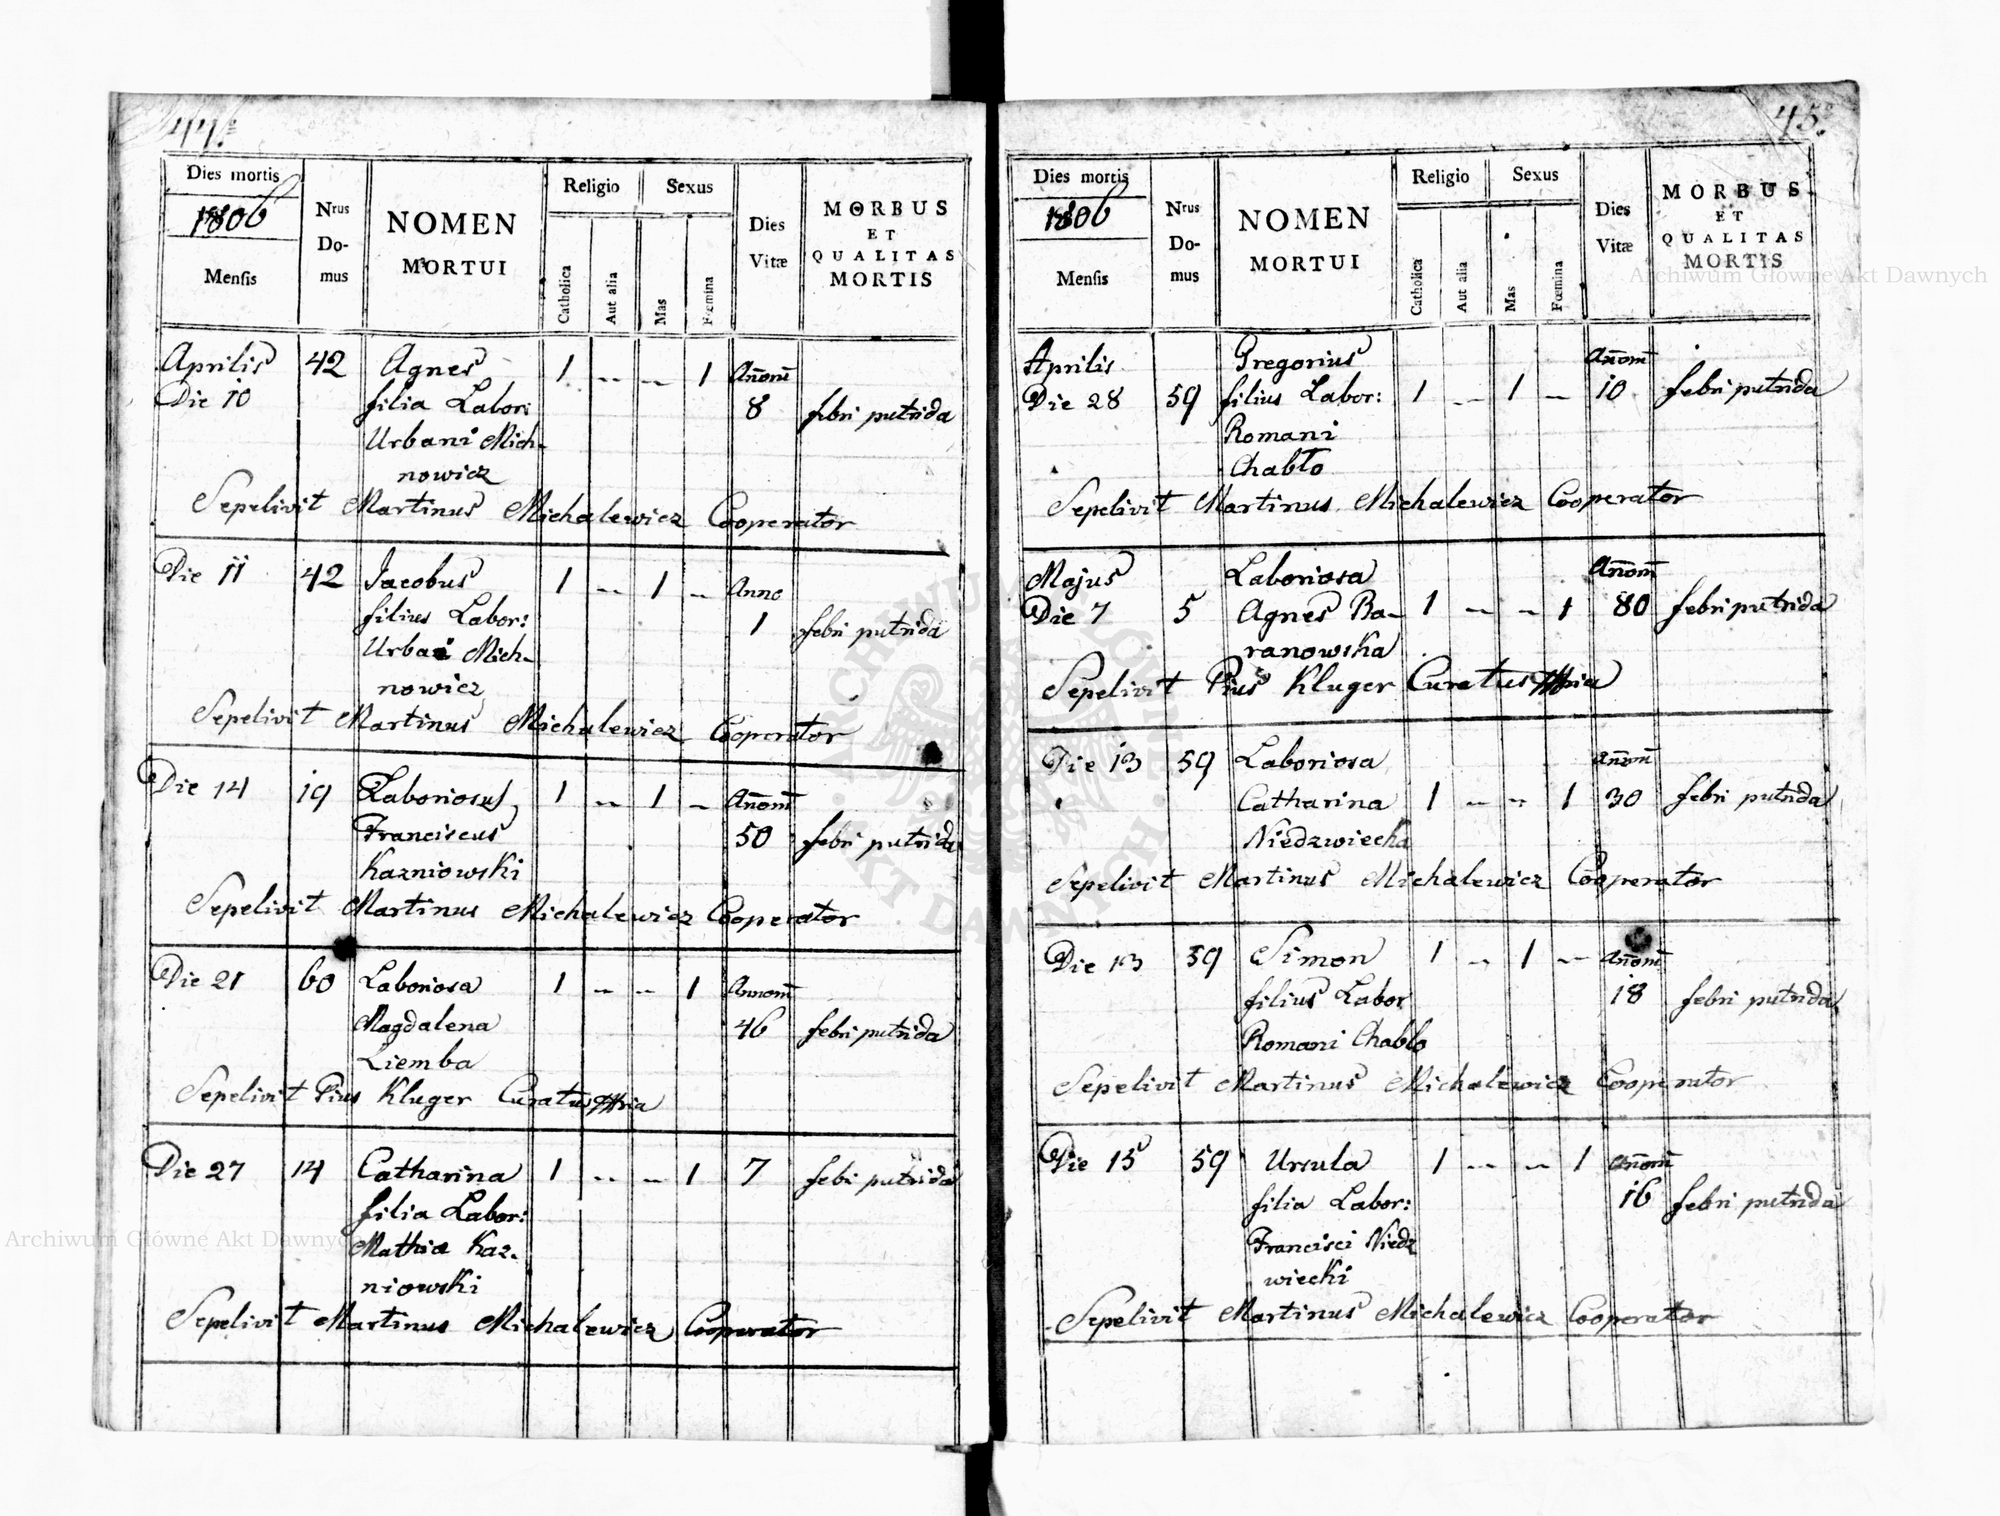 44.
Dies mortis
1806
Mensis
Nrus Do- mus
NOMEN
MORTUI
Religio
Catholica
Aut alia
Sexus
Mas
Fœmina
Dies
Vitæ
MORBUS
ET
QUALITAS
MORTIS
Aprilis 42 Agnes 1 -- -- 1 Añorū
Die 10 filia Labor: 8 febri putrida
Urbani Mich-
nowicz
Sepelivit Martinus Michalewicz Cooperator
Die 11 42 Jacobus 1 -- 1 -- Anno
filius Labor: 1 febri putrida
Urbai Mich-
nowicz
Sepelivit Martinus Michalewicz Cooperator
Die 14 19 Laboriosus 1 -- 1 -- Añorū
Franciscus 50 febri putrida
Kazniowski
Sepelivit Martinus Michalewicz Cooperator
Die 21 60 Laboriosa 1 -- -- 1 Annorū
Magdalena 46 febri putrida
Liemba
Sepelivit Pius Kluger Curatus
Die 27 14 Catharina 1 -- -- 1 7 febi putrida
filia Labor:
Mathiæ Kaz-
niowski
Sepelivit Martinus Michalewicz Cooperator
45.
Dies mortis
1806
Mensis
Nrus Do- mus
NOMEN
MORTUI
Religio
Catholica
Aut alia
Sexus
Mas
Fœmina
Dies
Vitæ
MORBUS
ET
QUALITAS
MORTIS
Aprilis Gregorius Añorū
Die 28 59 filius Labor: 1 -- 1 -- 10 febri putrida
Romani
Chabło
Sepelivit Martinus Michalewicz Cooperator
Majus Laboriosa Añorū
Die 7 5 Agnes Ba- 1 -- -- 1 80 febri putrida
ranowska
Sepelivit Pius Kluger Curatus
Die 13 59 Laboriosa Añorū
Catharina 1 -- -- 1 30 febri putrida
Niedzwiecka
Sepelivit Martinus Michalewicz Cooperator
Die 13 59 Simon 1 -- 1 -- Añorū
filius Labor 18 febri putrida
Romani Chabło
Sepelivit Martinus Michalewicz Cooperator
Die 15 59 Ursula 1 -- -- 1 Añorū
filia Labor: 16 febri putrida
Francisci Niedz
wiecki
Sepelivit Martinus Michalewicz Cooperator
Archiwum Główne Akt Dawnych
Archiwum Główne Akt Dawnych
ARCHIWUM GŁÓWNE AKT DAWNYCH